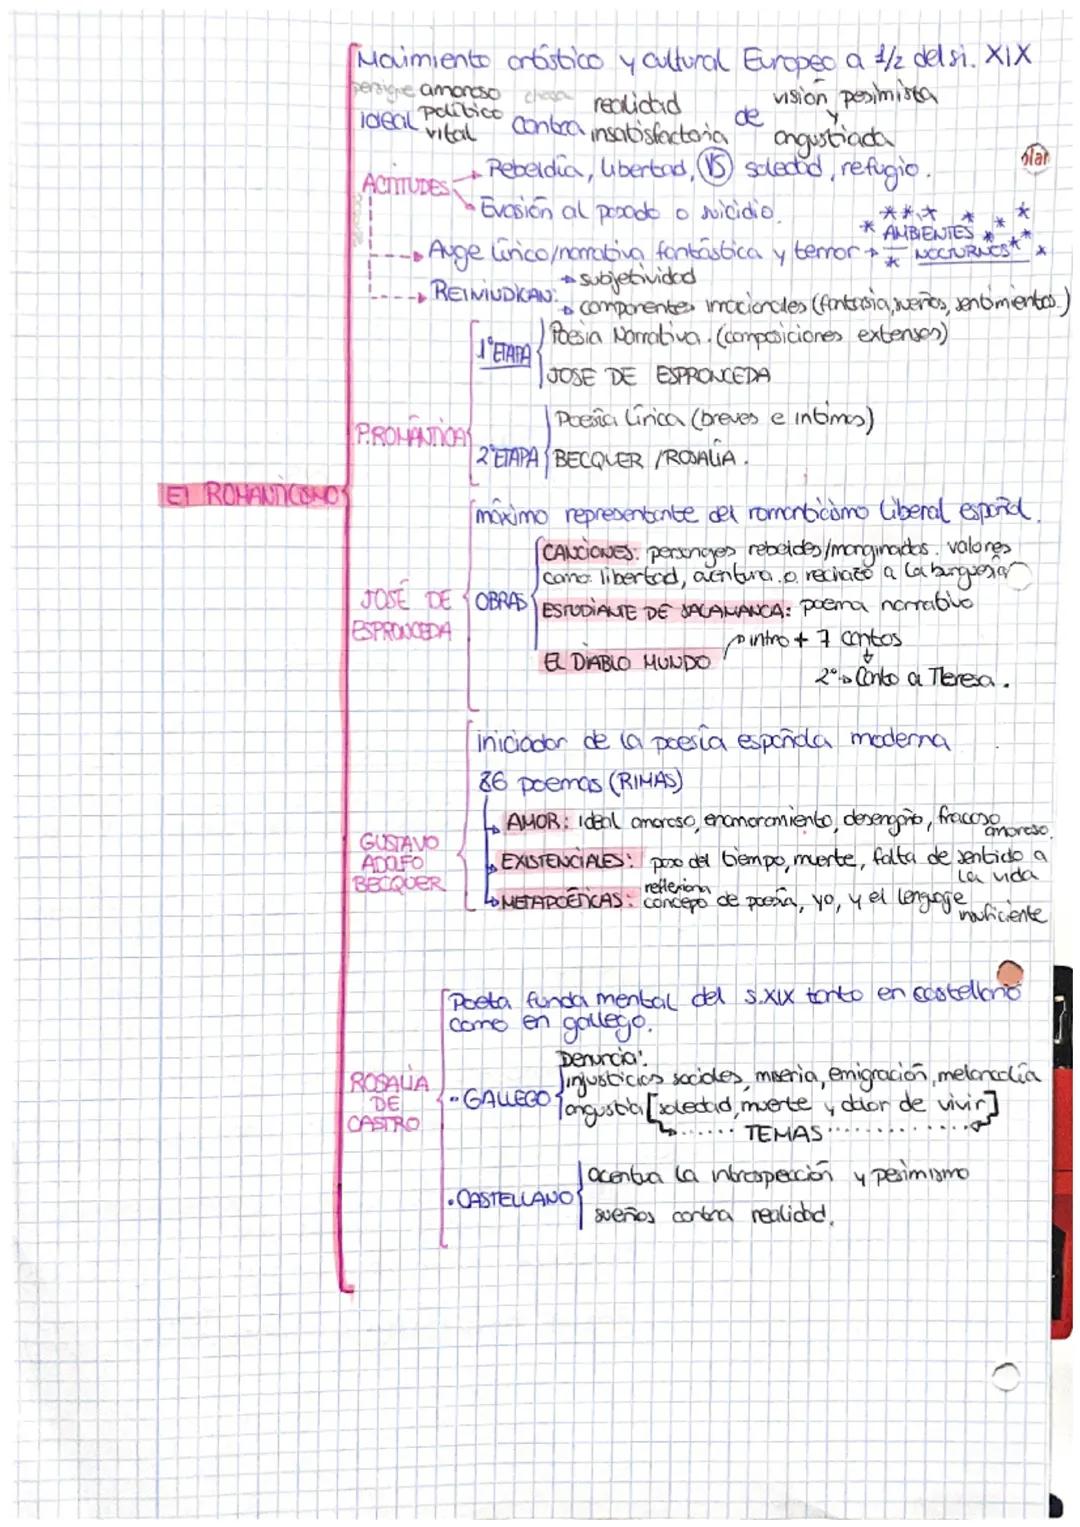 Movimiento artístico y cultural Europeo a 1/2 del si. XIX
persigue amoroso choca realidad visión pesimista
ideal político contra insatisfactoria de y
vital angustiada
ACTITUDES → Rebeldía, libertad, VS soledad, refugio.
→ Evasión al pasado o suicidio.
→ Auge lírico/narrativa fantástica y terror → AMBIENTES
NOCTURNOS
→ REIVINDICAN: → subjetividad
→ componentes irracionales (fantasia, sueños, sentimientos.)
1ºETAPA Poesia Narrativa. (composiciones extensas)
JOSE DE ESPRONCEDA
P.ROMÁNTICA
Poesía lírica (breves e intimas)
2ºETAPA BECQUER / ROSALÍA.
El ROMANTICISMO
máximo representante del romanticismo liberal español.
CANCIONES: personajes rebeldes/marginados. valores
como: libertad, aventura o rechazo a la burguesia
JOSÉ DE ESPRONCEDA
OBRAS
ESTUDIANTE DE SALAMANCA: poema narrativo
→ intro + 7 cantos
EL DIABLO MUNDO
2º → Canto a Teresa.
iniciador de la poesía española moderna
86 poemas (RIMAS)
→ AMOR: ideal amoroso, enamoramiento, desengaño, fracaso
amoroso.
GUSTAVO
ADOLFO
BECQUER
→ EXISTENCIALES: paso del tiempo, muerte, falta de sentido a
la vida
reflexiona
→ METAPOÉTICAS: concepo de poesía, yo, y el lenguaje
insuficiente
Poeta fundamental del s.XIX tanto en castellano
como en gallego.
Denuncia:
injusticias sociales, miseria, emigración, melancolía
ROSALÍA
DE
CASTRO
· GALLEGO
angustia [soledad, muerte y dolor de vivir]
TEMAS
acentua la introspección y pesimismo
· CASTELLANO
sueños contra realidad.